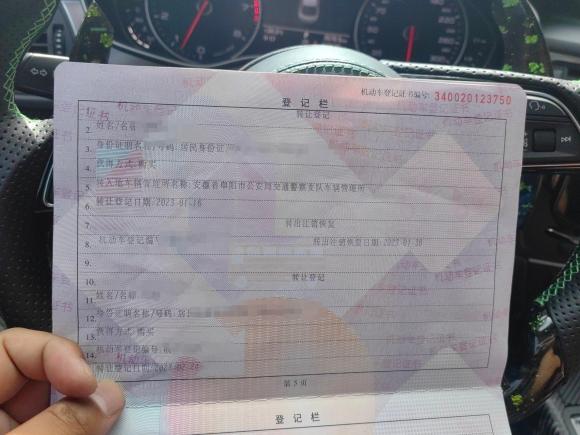 机动车登记证书编号: 340020123750
登记栏
1. 转让登记
2. 姓名/名称
3. 身份证明名称/号码:居民身份证
4. 获得方式:购买
5. 转入地车辆管理所名称:安徽省阜阳市公安局交通警察支队车辆管理所
6. 转让登记日期:2023-01-16
7. 转出注销恢复
8. 机动车登记编 转出注销恢复日期:2023-01-30
9.
10. 转让登记
11. 姓名/名称
12. 身份证明名称/号码:居
13. 获得方式:购买
机动车登记编号:皖
14. 转让登记日期:2023-02-24
第 5 页
登记栏